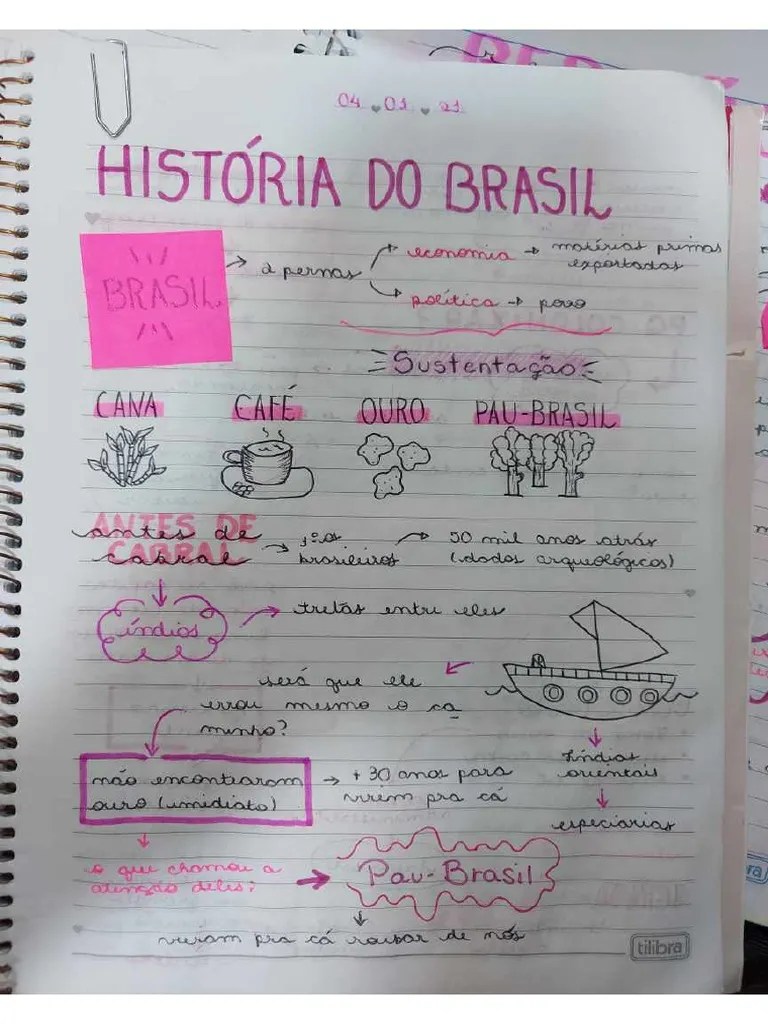 04 03 21
HISTÓRIA DO BRASIL
BRASIL
2 pernas
economia → matérias primas
exportadas
política → povo
Sustentação
CANA CAFÉ OURO PAU-BRASIL
ANTES DE
CABRAL
antes de
cabral → 1ºos
brasileiros → 50 mil anos atrás
(dados arqueológicos)
índios → tretas entre eles
será que ele
errou mesmo o ca
minho?
índias
orientais
especiarias
não encontraram
ouro (imediato) → + 30 anos para
virem pra cá
o que chamou a
atenção deles? → Pau-Brasil
vieram pra cá roubar de nós
tilibra